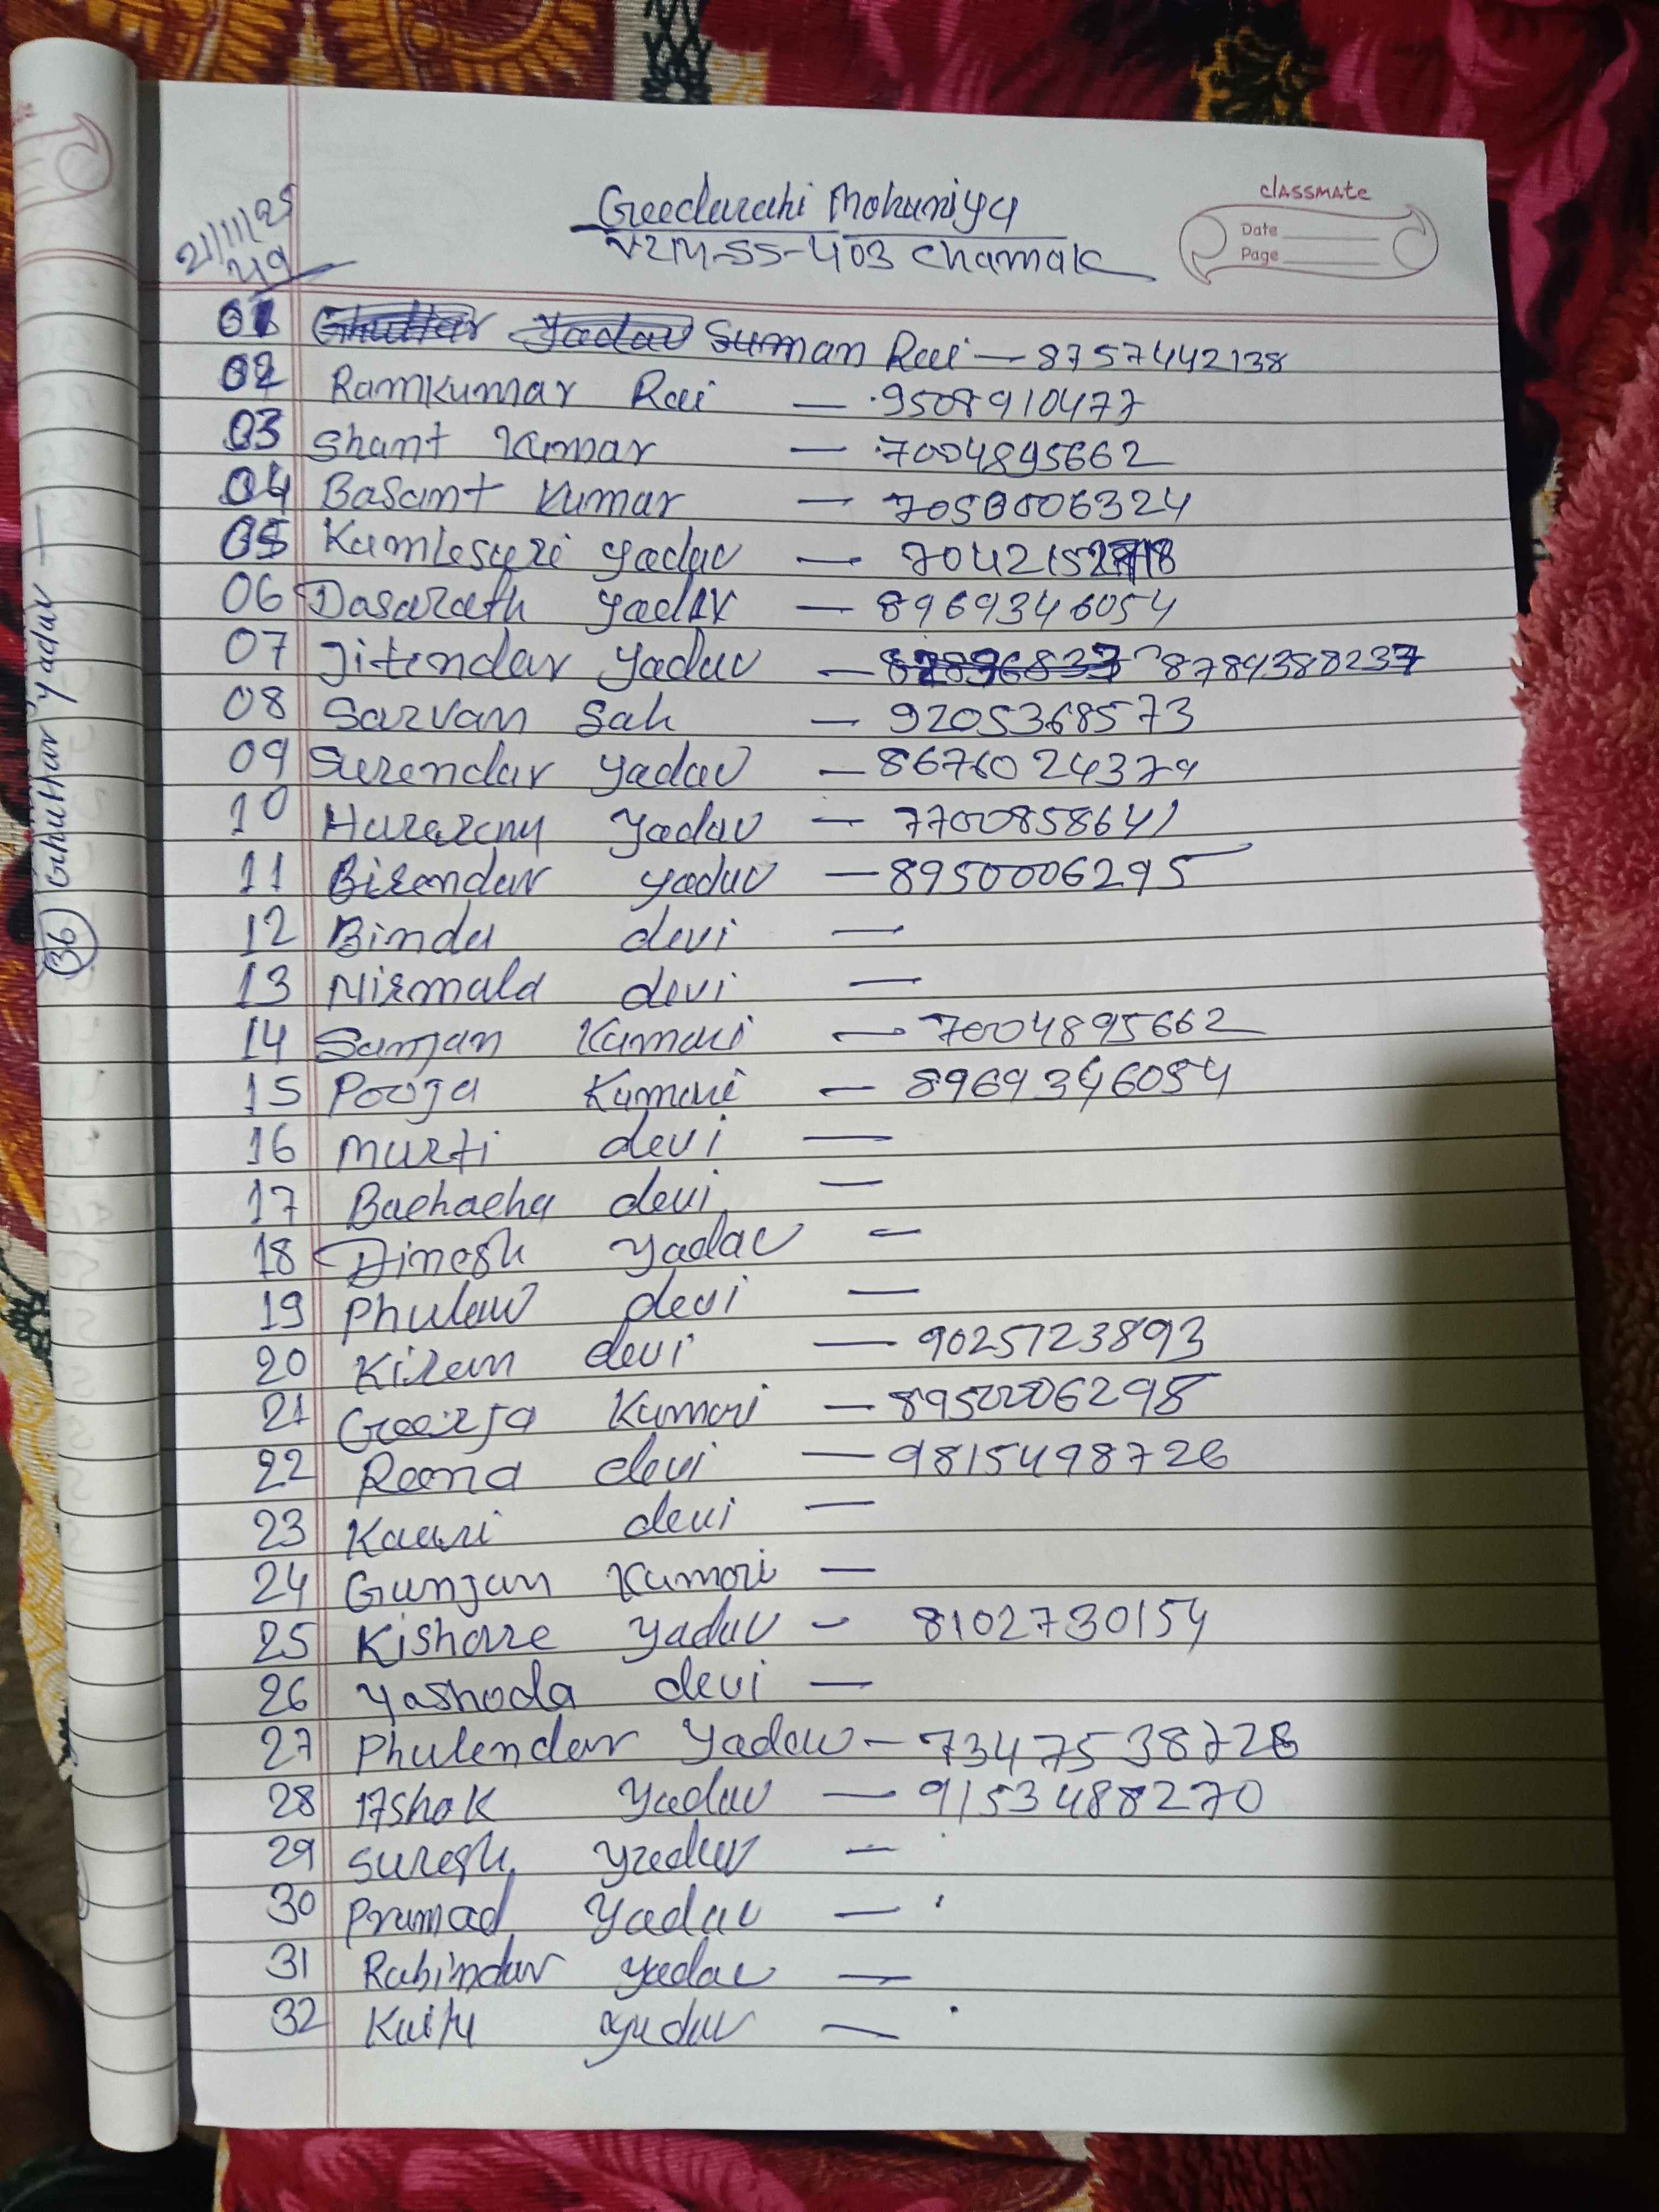 classmate
Date
Page
21/11/25
Geedarahi Mohuniya
VZM-SS-403 Chamak
01 Ghuttar Yadav Suman Rai — 8757442138
02 Ramkumar Rai — 9508910477
03 Shant Kumar — 7004895662
04 Basant Kumar —
05 Yadav —
06 Dasarath Yadav — 8969346054
07 Jitendar Yadav — 8789388237
08 Sarvan Sah — 9205368573
09 Surendar Yadav — 8676024379
10 Yadav — 7700858641
11 Birendar Yadav — 8950006295
12 Binda devi —
13 Nirmala devi —
14 Sanjan Kumari — 7004895662
15 Pooja Kumari — 8969346054
16 Murti devi —
17 Bachacha devi —
18 Dinesh Yadav —
19 Phulaw devi —
20 Kiran devi — 9025723893
21 Geerja Kumari — 8950006298
22 Reena devi — 9815498726
23 devi —
24 Gunjan Kumari —
25 Kishore Yadav - 8102730154
26 Yashoda devi —
27 Phulendar Yadav - 7347538726
28 Ashok Yadav — 9153488270
29 Suresh Yadav —
30 Pramad Yadav —
31 Rabindar Yadav —
32 Yadav —
36 Ghuttar Yadav —